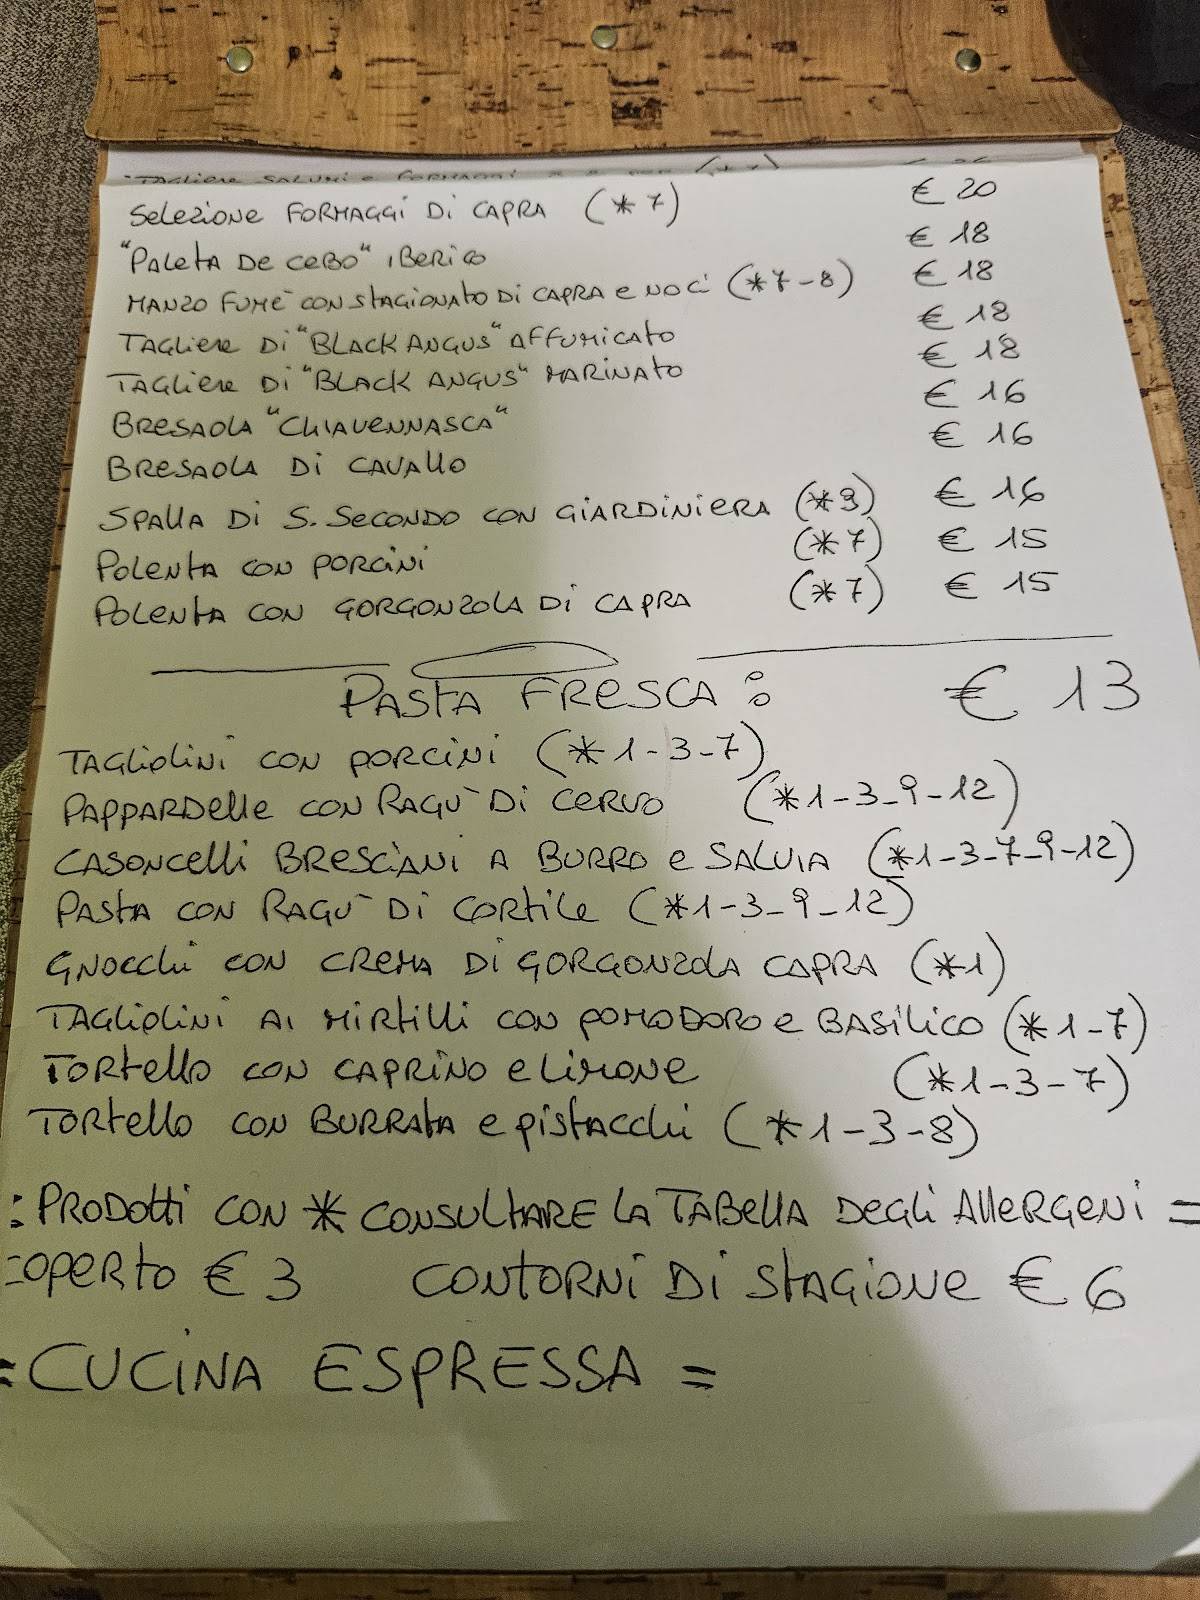 TAGLIERE SALUMI e FORMAGGI
SeLeZIONE FORMAGGI DI CAPRA (*7) € 20
"PALETA De CEBO" IBeRICO € 18
MANZO FUMÈ CON STAGIONATO DI CAPRA e NOCI (*7-8) € 18
TAGLIeRe DI "BLACK ANGUS" AFFUMICATO € 18
TAGLIeRe DI "BLACK ANGUS" MARINATO € 18
BReSAOLA "CHIAVENNASCA" € 16
BReSAOLA Di CAVALLO € 16
SPALLA DI S. SeCONDO CON GIARDINIERA (*9) € 16
POLeNTA CON PORCINI (*7) € 15
POLeNTA CON GORGONZOLA DI CAPRA (*7) € 15
PASTA FRESCA: € 13
TAGLIOLINI CON PORCINI (*1-3-7)
PAPPARDelle CON RAGÙ DI CERVO (*1-3-9-12)
CASONCELLI BRESCIANI A BURRO e SALVIA (*1-3-7-9-12)
PASTA CON RAGÙ DI CORTILE (*1-3-9-12)
GNOCCHI CON CREMA DI GORGONZOLA CAPRA (*1)
TAGLIOLINI AI MIRTILLI CON POMODORO e BASILICO (*1-7)
TORTELLO CON CAPRINO e LIMONE (*1-3-7)
TORTELLO CON BURRATA e PISTACCHI (*1-3-8)
=PRODOTTI CON * CONSULTARE LA TABELLA DEGLI ALLERGENI =
COPERTO € 3 CONTORNI DI STAGIONE € 6
= CUCINA ESPRESSA =